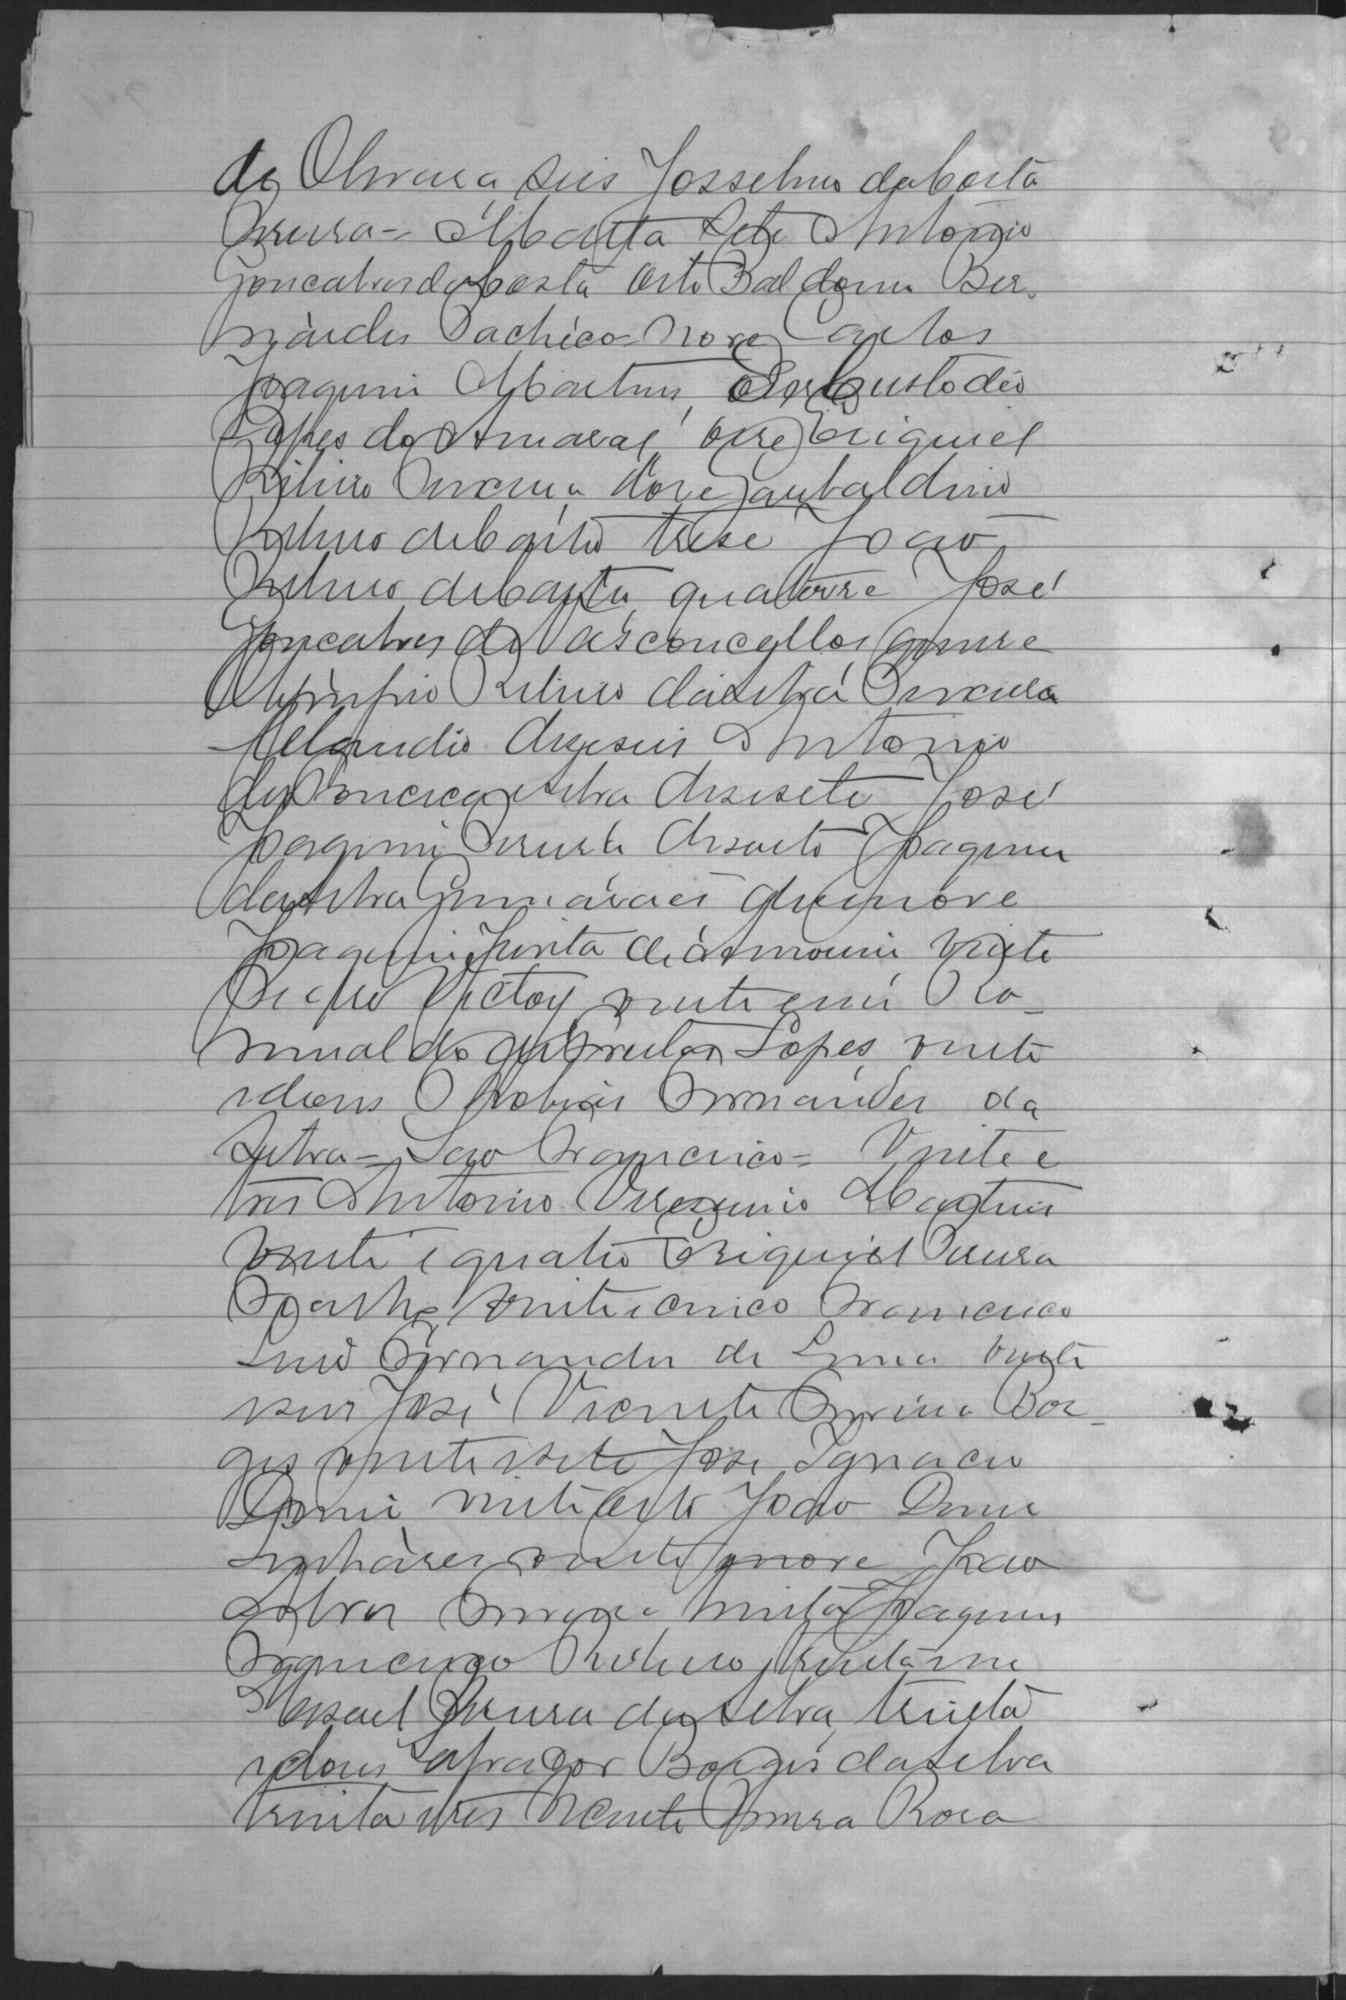 de Oliveira, seis Josselino da Costa
Pereira = Motta Sete Antonio
Goncalves da Costa oito Baldoino Ber-
nardes Pacheco = nove Carlos
Joaquim Martins, Des Custodio
Lopes do Amaral, onze Eziquiel
Ribeiro Pereira dose Garibaldino
Ribeiro de Castro trese João
Ribeiro de Castro quatorse José
Goncalves de Vasconcellos quinse
Olimpio Ribeiro da Silva
Claudio Deseseis Antonio
da Fonceca e Silva Desesete José
Joaquim Pereira Desoito Joaquim
da Silva Guimarães Desenove
Joaquim de Amorim Vinte
Pedro Victor vinte e um Ro-
mualdo Lopes, vinte
e dous Fernandes da
Silva = São Francisco = Vinte e
tres Antonio Virginio Martins
vinte e quatro Eziquiel Pereira
Rocha, vinte e cinco Francisco
Luis Fernandes de Lima vinte
e seis José Vicente Ferreira Bor-
ges vinte e sete José Ignacio
vinte e oito João
Linhares vinte e nove João
Alves trinta Joaquim
Francisco Ribeiro, trinta e um
Misael Pereira da Silva, trinta
e dous Borges da Silva
trinta e tres Vicente Rosa